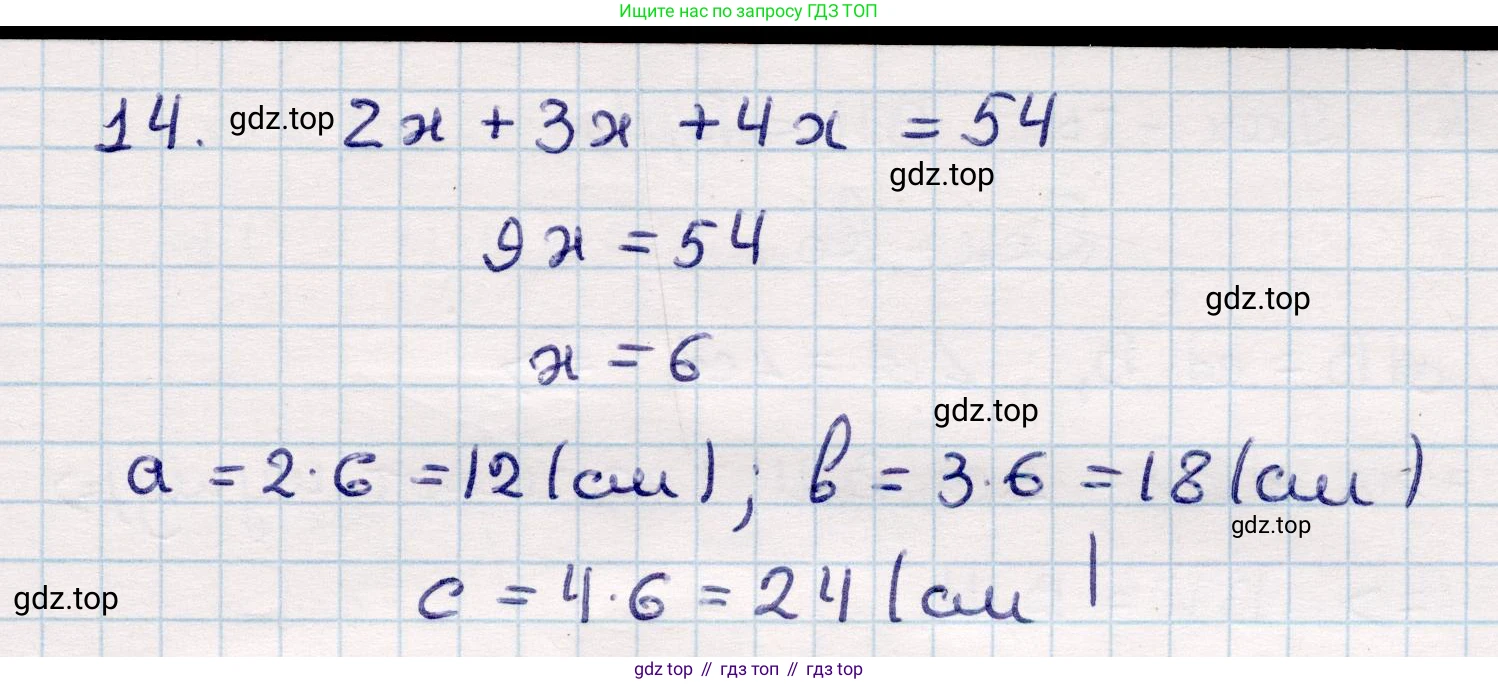 Ищите нас по запросу ГДЗ ТОП
14. gdz.top 2x + 3x + 4x = 54
gdz.top
9x = 54
gdz.top
x = 6
gdz.top
a = 2·6 = 12 (см); b = 3·6 = 18 (см)
gdz.top
gdz.top c = 4·6 = 24 (см)
gdz top // гдз топ // гдз top